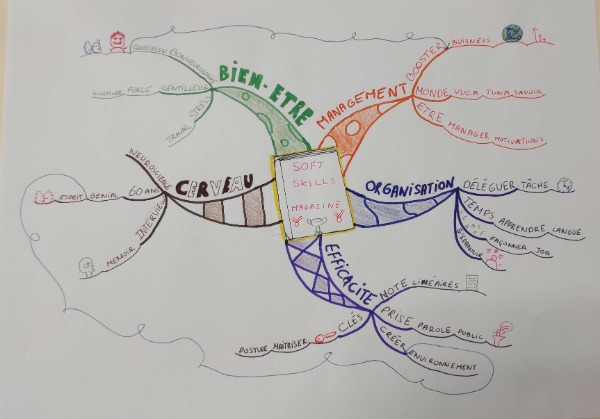 SOFT
SKILLS
MAGAZINE
BIEN-ETRE
QUOTIDIEN BONHEUR
FORCE GENTILLESSE
TRAVAIL STRESS
MANAGEMENT
BOOSTER BUISNESS
MONDE VUCA TUNASAVOIR
ETRE MANAGER MOTIVATIONS
ORGANISATION
DÉLÉGUER TÂCHE
TEMPS APPRENDRE LANGUE
S'ÉPANOUIR FAÇONNER JOB
EFFICACITE
NOTE LINÉAIRES
PRISE PAROLE PUBLIC
CRÉER ENVIRONNEMENT
CLÉS
POSTURE MAÎTRISER
CERVEAU
NEUROSCIENCE
ESPRIT GENIAL 60 ANS
MEMOIR INTERVIEW